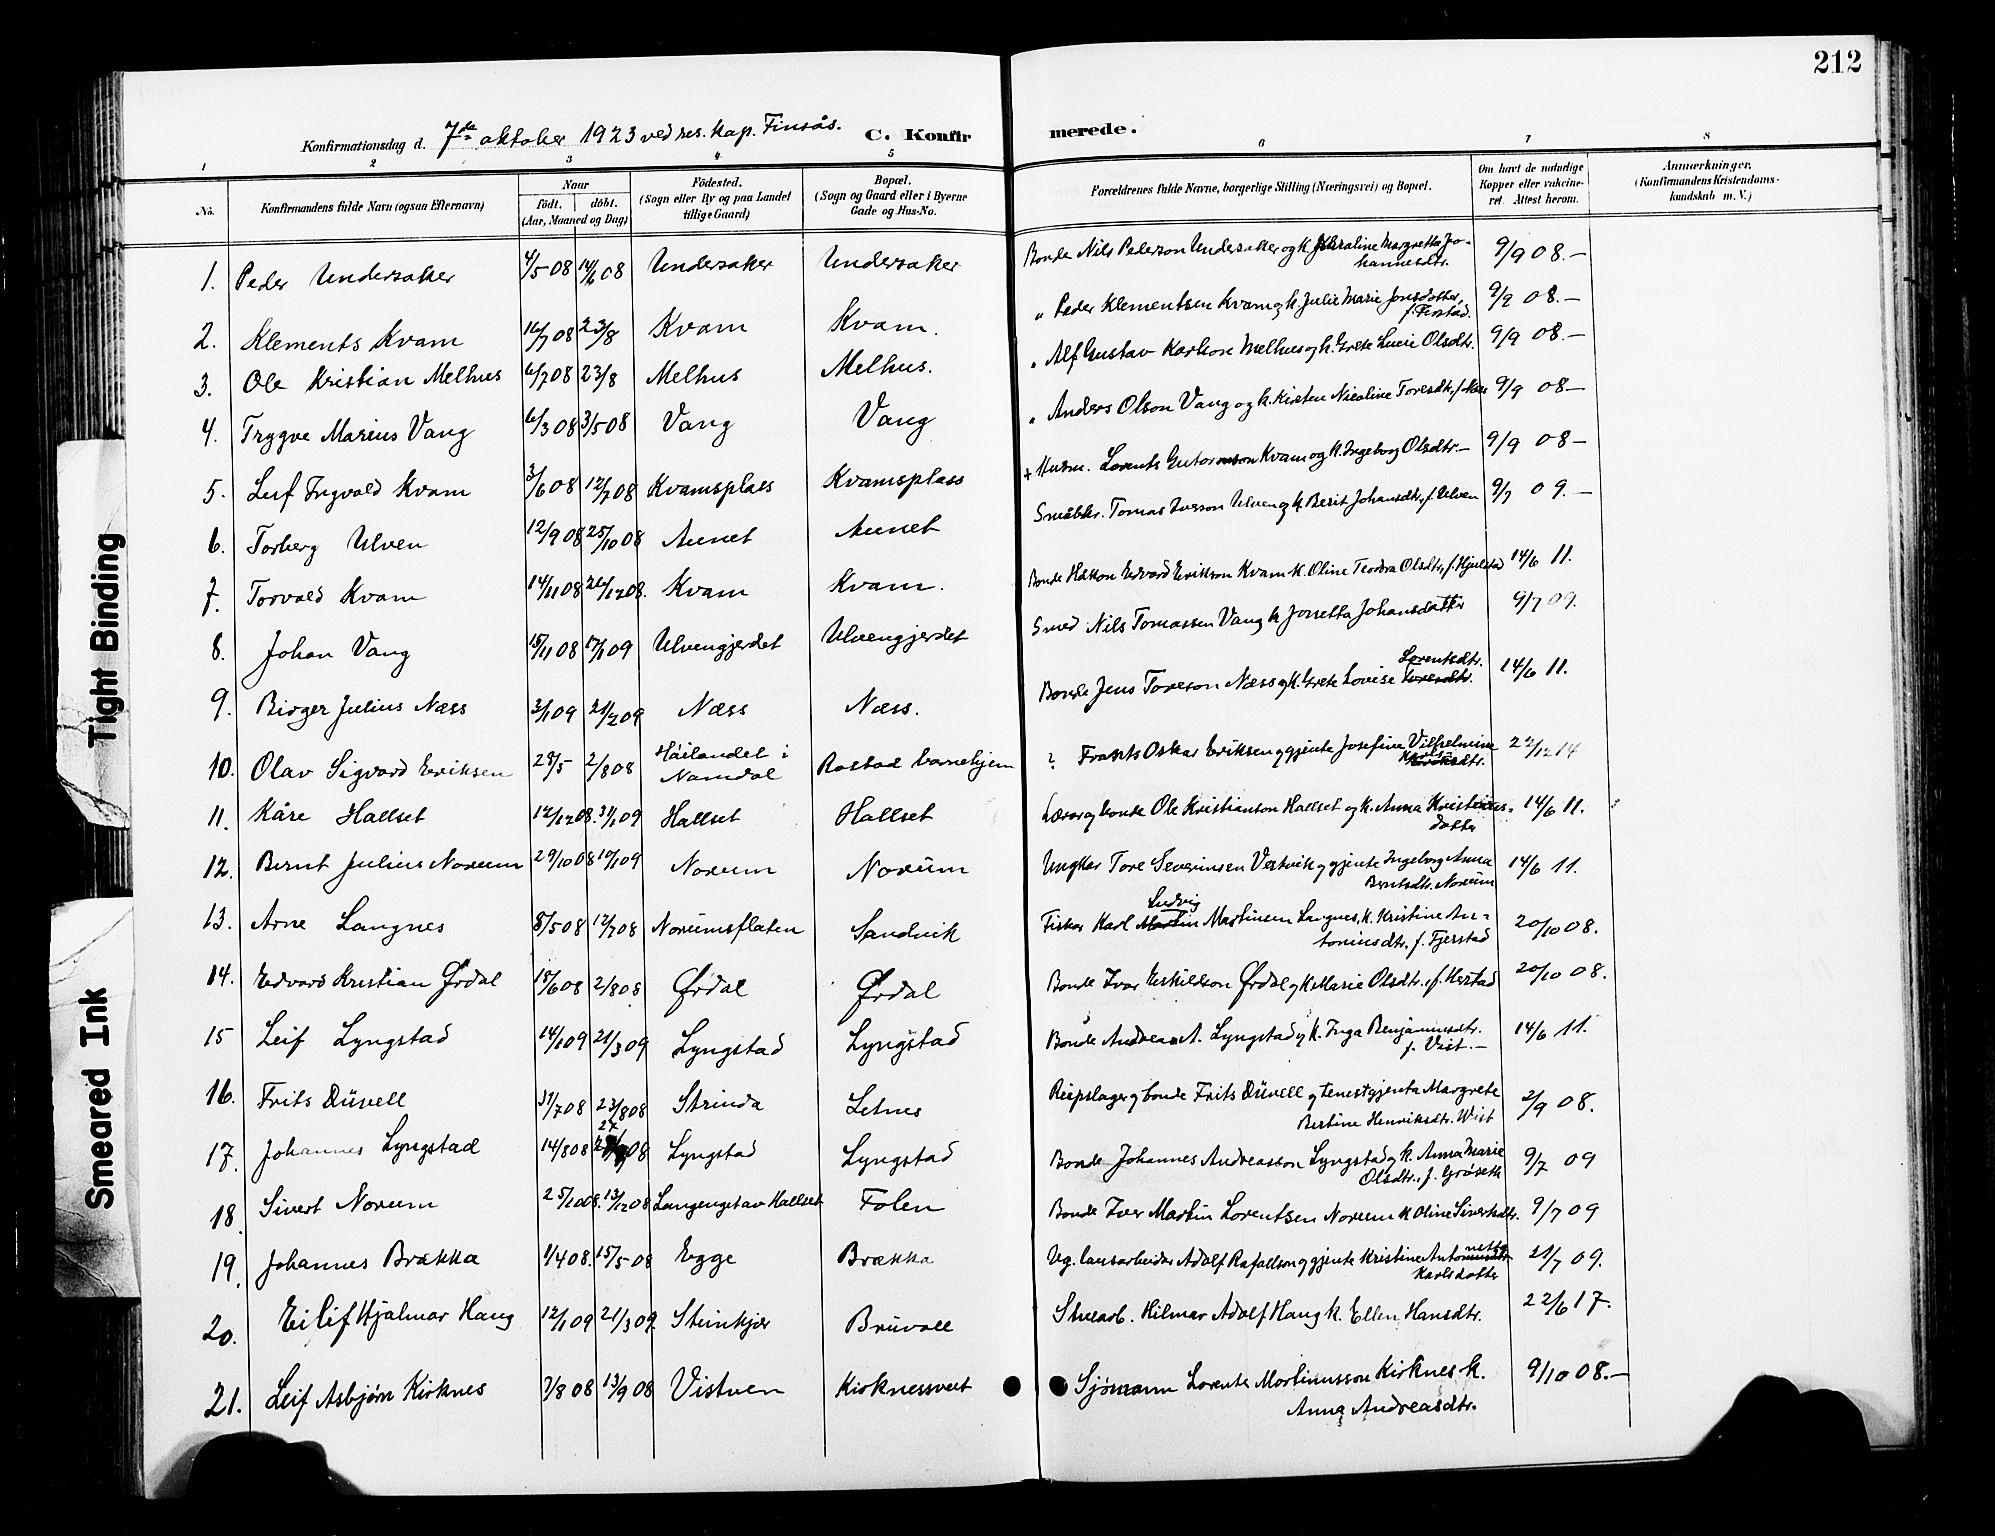 212
Konfirmationsdag d. 7de oktober 1923 ved res. kap. Finsås. C. Konfirmerede.
1 2 3 4 5 6 7 8
No. Konfirmandens fulde Navn (ogsaa Efternavn) Naar født. døbt. (Aar, Maaned og Dag) Födested. (Sogn eller By og paa Landet tillige Gaard) Bopæl. (Sogn og Gaard eller i Byerne Gade og Hus-No. Forældrenes fulde Navne, borgerlige Stilling (Næringsvei) og Bopæl. Om havt de naturlige Kopper eller vakcineret. Attest herom. Anmærkninger. (Konfirmandens Kristendomskundskab m. V.)
1. Peder Undersaker 4/5 08 14/6 08 Undersaker Undersaker Bonde Nils Pederson Undersaker og k. Margretta Johannesdtr. 9/9 08.-
2. Klements Kvam 16/7 08 23/8 Kvam Kvam. " Peder Klementsen Kvam og k. Julie Marie Jonsdotter, f. Firstad. 9/9 08.-
3. Ole Kristian Melhus 6/7 08 23/8 Melhus Melhus. " Alf Gustav Karlson Melhus og k. Grete Lucie Olsdtr. 9/9 08.-
4. Trygve Marius Vang 6/3 08 3/5 08 Vang Vang " Anders Olson Vang og k. Kirsten Nicoline Toresdtr. f. Næss 9/9 08-
5. Leif Ingvald Kvam 3/6 08 12/7 08 Kvamsplass Kvamsplass + Husm. Lorents Kvam og k. Ingeborg Olsdtr.- 9/9 08-
6. Torberg Ulven 12/9 08 25/10 08 Aunet Aunet Småbr. Tomas Iverson Ulven og k. Berit Johansdtr. f. Ulven 9/7 09.-
7. Torvald Kvam 14/11 08 26/12 08. Kvam Kvam. Bonde Håkon Edvard Erikson Kvam k. Oline Teodora Olsdtr, f. Hjulstad 14/6 11.
8. Johan Vang 15/11 08 17/1 09 Ulvengjerdet Ulvengjerdet Smed Nils Tomassen Vang k. Jonetta Johansdatter 9/7 09.
9. Birger Julius Næss 3/1 09 21/2 09 Næss Næss. Bonde Jens Toreson Næss og k. Grete Lovise Toresdtr. Lorentsdtr. 14/6 11.
10. Olav Sigvard Eriksen 28/5 2/8 08 Høilandet i Namdal Rostad barnehjem ? Frants Oskar Eriksen og gjente Josefine Vilhelmine 22/12 14
11. Kåre Hallset 12/12 08. 31/1 09 Hallset Hallset Lærer og bonde Ole Kristianson Hallset og k. Anna Kristiansdotter 14/6 11.
12. Bernt Julius Norum 29/10 08 10/1 09 Norum Norum Ungkar Tore Severinsen Vestvik og gjente Ingeborg Anna Berntsdtr. Norum 14/6 11.
13. Arne Langnes 8/5 08 12/7 08 Norumsflaten Sandvik Fisker Karl Martin Ludvig Martinsen Langnes, k. Kristine Antoniusdtr. f. Fjerstad 20/10 08.
14. Edvard Kristian Ørdal 18/6 08 2/8 08 Ørdal Ørdal Bonde Ivar Eskildson Ørdal og k. Marie Olsdtr. f. Herstad 20/10 08.
15 Leif Lyngstad 14/1 09 21/3 09 Lyngstad Lyngstad Bonde Andreas A. Lyngstad og k. Inga Benjaminsdtr. f. Vist.- 14/6 11.
16. Frits Düvell 31/7 08 23/8 08 Strinda Letnes Reipslager og bonde Frits Düvell og tenestgjenta Margrete Bertine Henriksdtr. Wist 2/9 08.
17. Johannes Lyngstad 14/8 08 27/9 08 Lyngstad Lyngstad Bonde Johannes Andreasson Lyngstad og k. Anna Marie Olsdtr., f. Grøseth 9/7 09
18 Sivert Norum 25/10 08. 13/12 08 Langengstav Hallset Folen Bonde Iver Martin Lorentsen Norum k. Oline Sivertsdtr. 9/7 09
19. Johannes Brækka 1/4 08. 15/5 08 Egge Brækka Adolf Rafaelson og gjente Kristine Antonette Karlsdotter 21/7 09.
20. Eilif Hjalmar Haug 12/1 09 21/3 09. Steinkjer Bruvoll Stuearb. Hilmar Adolf Haug k. Ellen Hansdtr. 22/6 17.
21. Leif Asbjørn Kirknes 7/8 08 13/9 08 Vistven Kirknesveet Sjømann Lorents Martinusson Kirknes k. Anna Andreasdtr. 9/10 08.-
Tight Binding
Smeared Ink